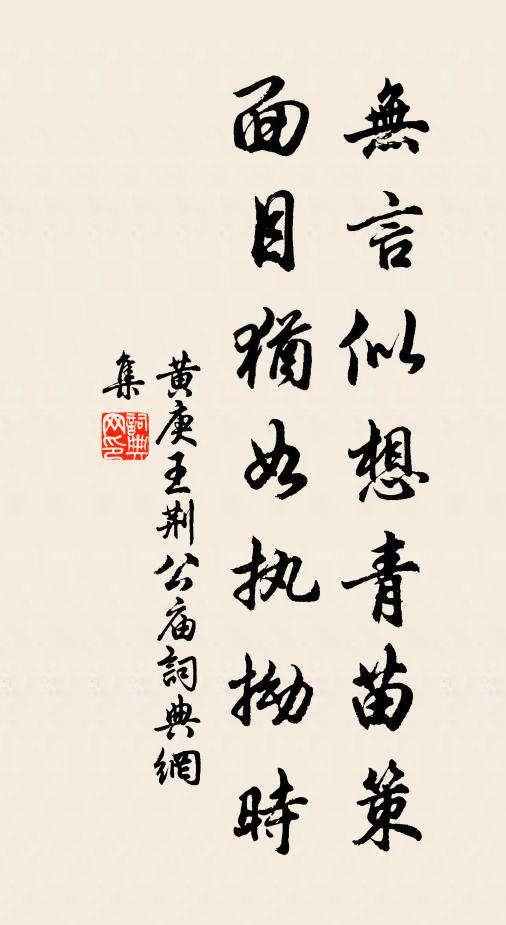 無言似想青苗策
面目猶如执拗時
黃庚王荆公庙詞典網
集
詞典
网印